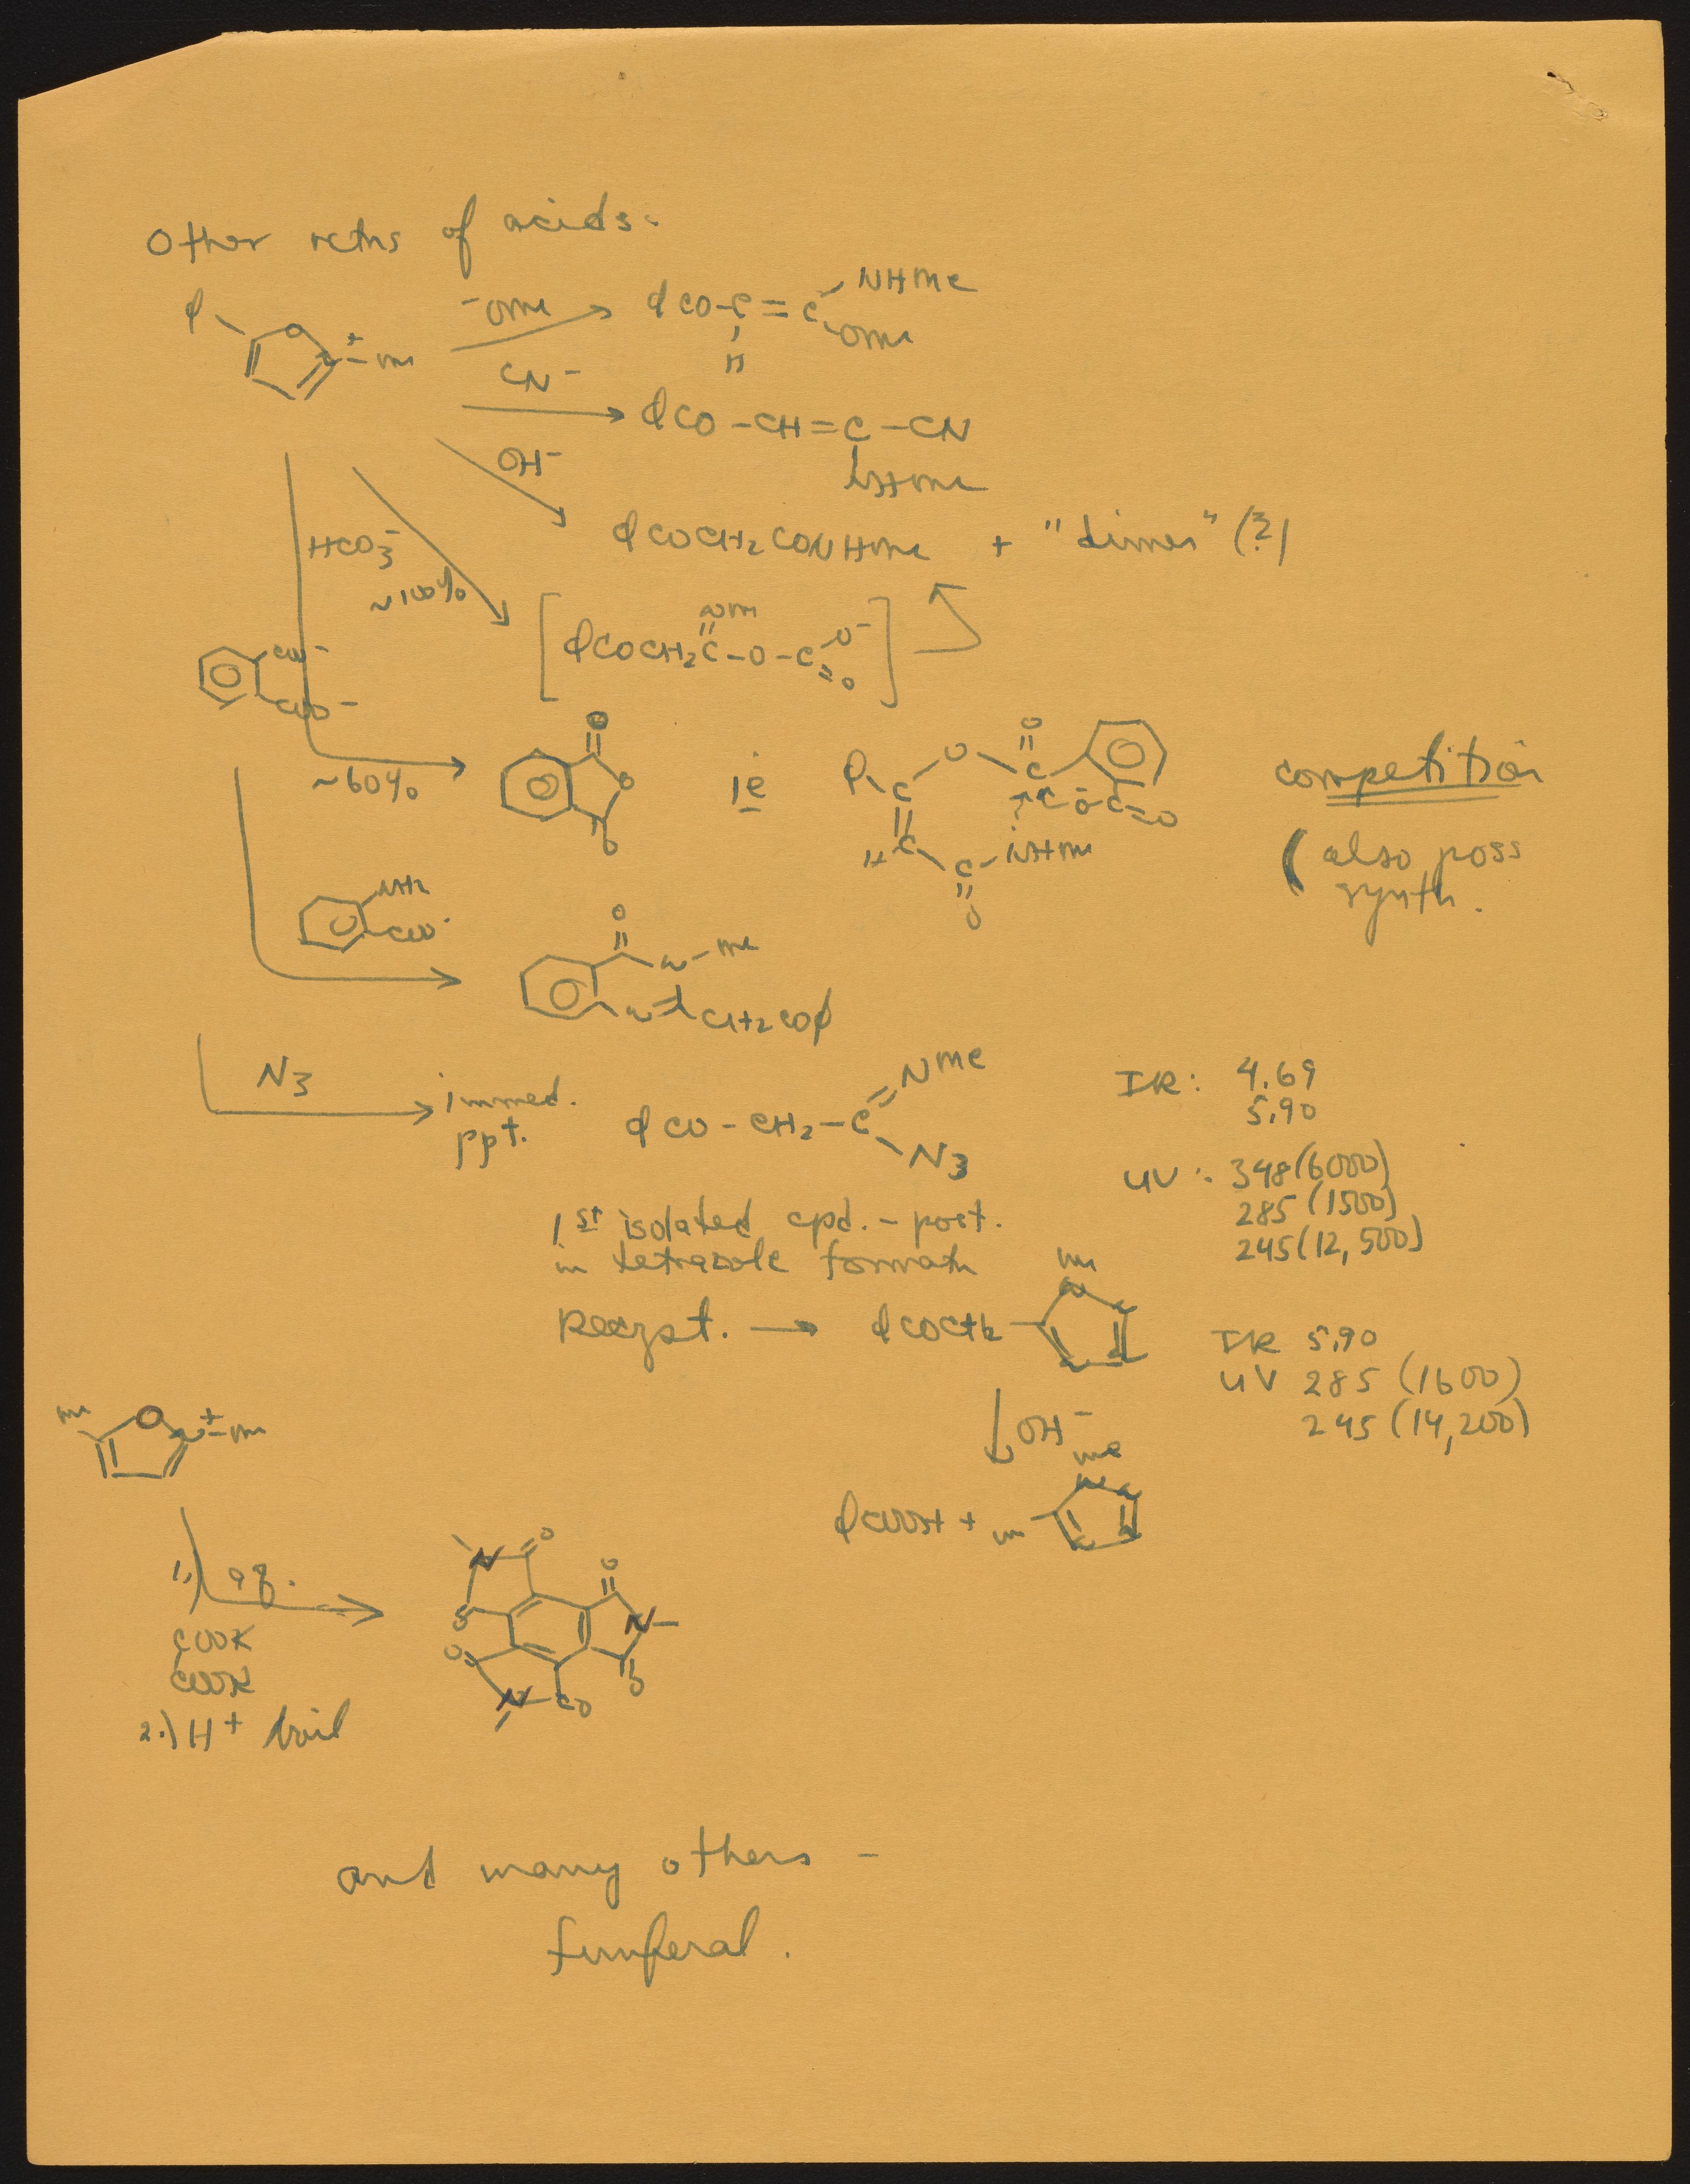 Other rctns of acids.
φ
O
N+–Me
−OMe
φCO–C=C
NHMe
OMe
H
CN−
φCO–CH=C–CN
NHMe
OH−
φCOCH2CONHMe + "dimer" (?)
HCO3−
~100%
NMe
[φCOCH2C–O–C
O−
O
]
COO−
COO−
~60%
O
O
O
ie
φ
C
O
O
C
C
O−C=O
H
C
C–NHMe
O
competition
( also poss
synth.
NH2
COO−
O
N–Me
N
CH2COφ
N3
immed.
ppt.
φCO–CH2–C
NMe
N3
IR: 4.69
5.90
UV: 348(6000)
285(1500)
245(12,500)
1st isolated cpd. –
in tetrazole formatn
Recryst. → φCOCH2
Me
N
N
IR 5.90
UV 285 (1600)
245 (14,200)
OH−
Me
φCOOH + Me
N
N
Me
O
N+–Me
1.) aq.
COOK
COOK
2.) H+ boil
N
O
O
N
O
O
N
CO
and many others –